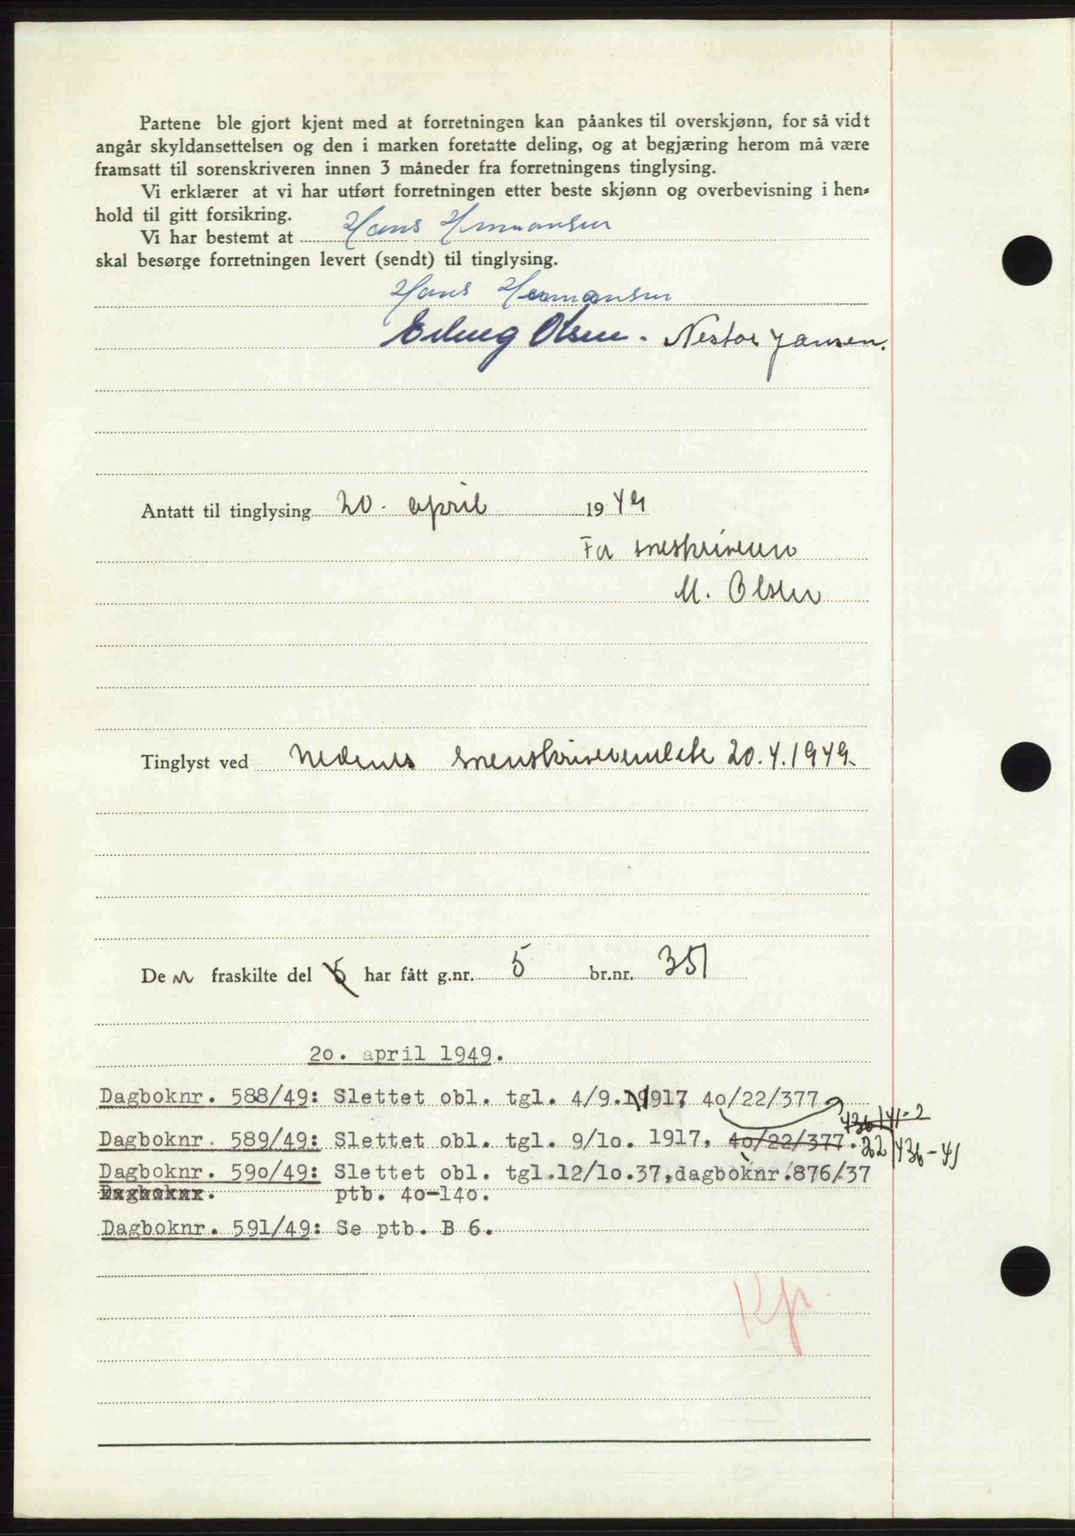 Partene ble gjort kjent med at forretningen kan påankes til overskjønn, for så vidt
angår skyldansettelsen og den i marken foretatte deling, og at begjæring herom må være
framsatt til sorenskriveren innen 3 måneder fra forretningens tinglysing.
Vi erklærer at vi har utført forretningen etter beste skjønn og overbevisning i hen-
hold til gitt forsikring.
Vi har bestemt at Hans Hermansen
skal besørge forretningen levert (sendt) til tinglysing.
Hans Hermansen
Erling Olsen. Nestor Jansen.
Antatt til tinglysing 20. april 1949
For sorenskriveren
M. Olsen
Tinglyst ved Nedenes sorenskriverembete 20.4.1949.
Den fraskilte del har fått g.nr. 5 br.nr. 351
20. april 1949.
Dagboknr. 588/49: Slettet obl. tgl. 4/9.1917 40/22/377.
436/41-2
Dagboknr. 589/49: Slettet obl. tgl. 9/10. 1917, 40/22/377. 22/436-41
Dagboknr. 590/49: Slettet obl. tgl.12/10.37,dagboknr.876/37
Dagboknr. ptb. 40-140.
Dagboknr. 591/49: Se ptb. B 6.